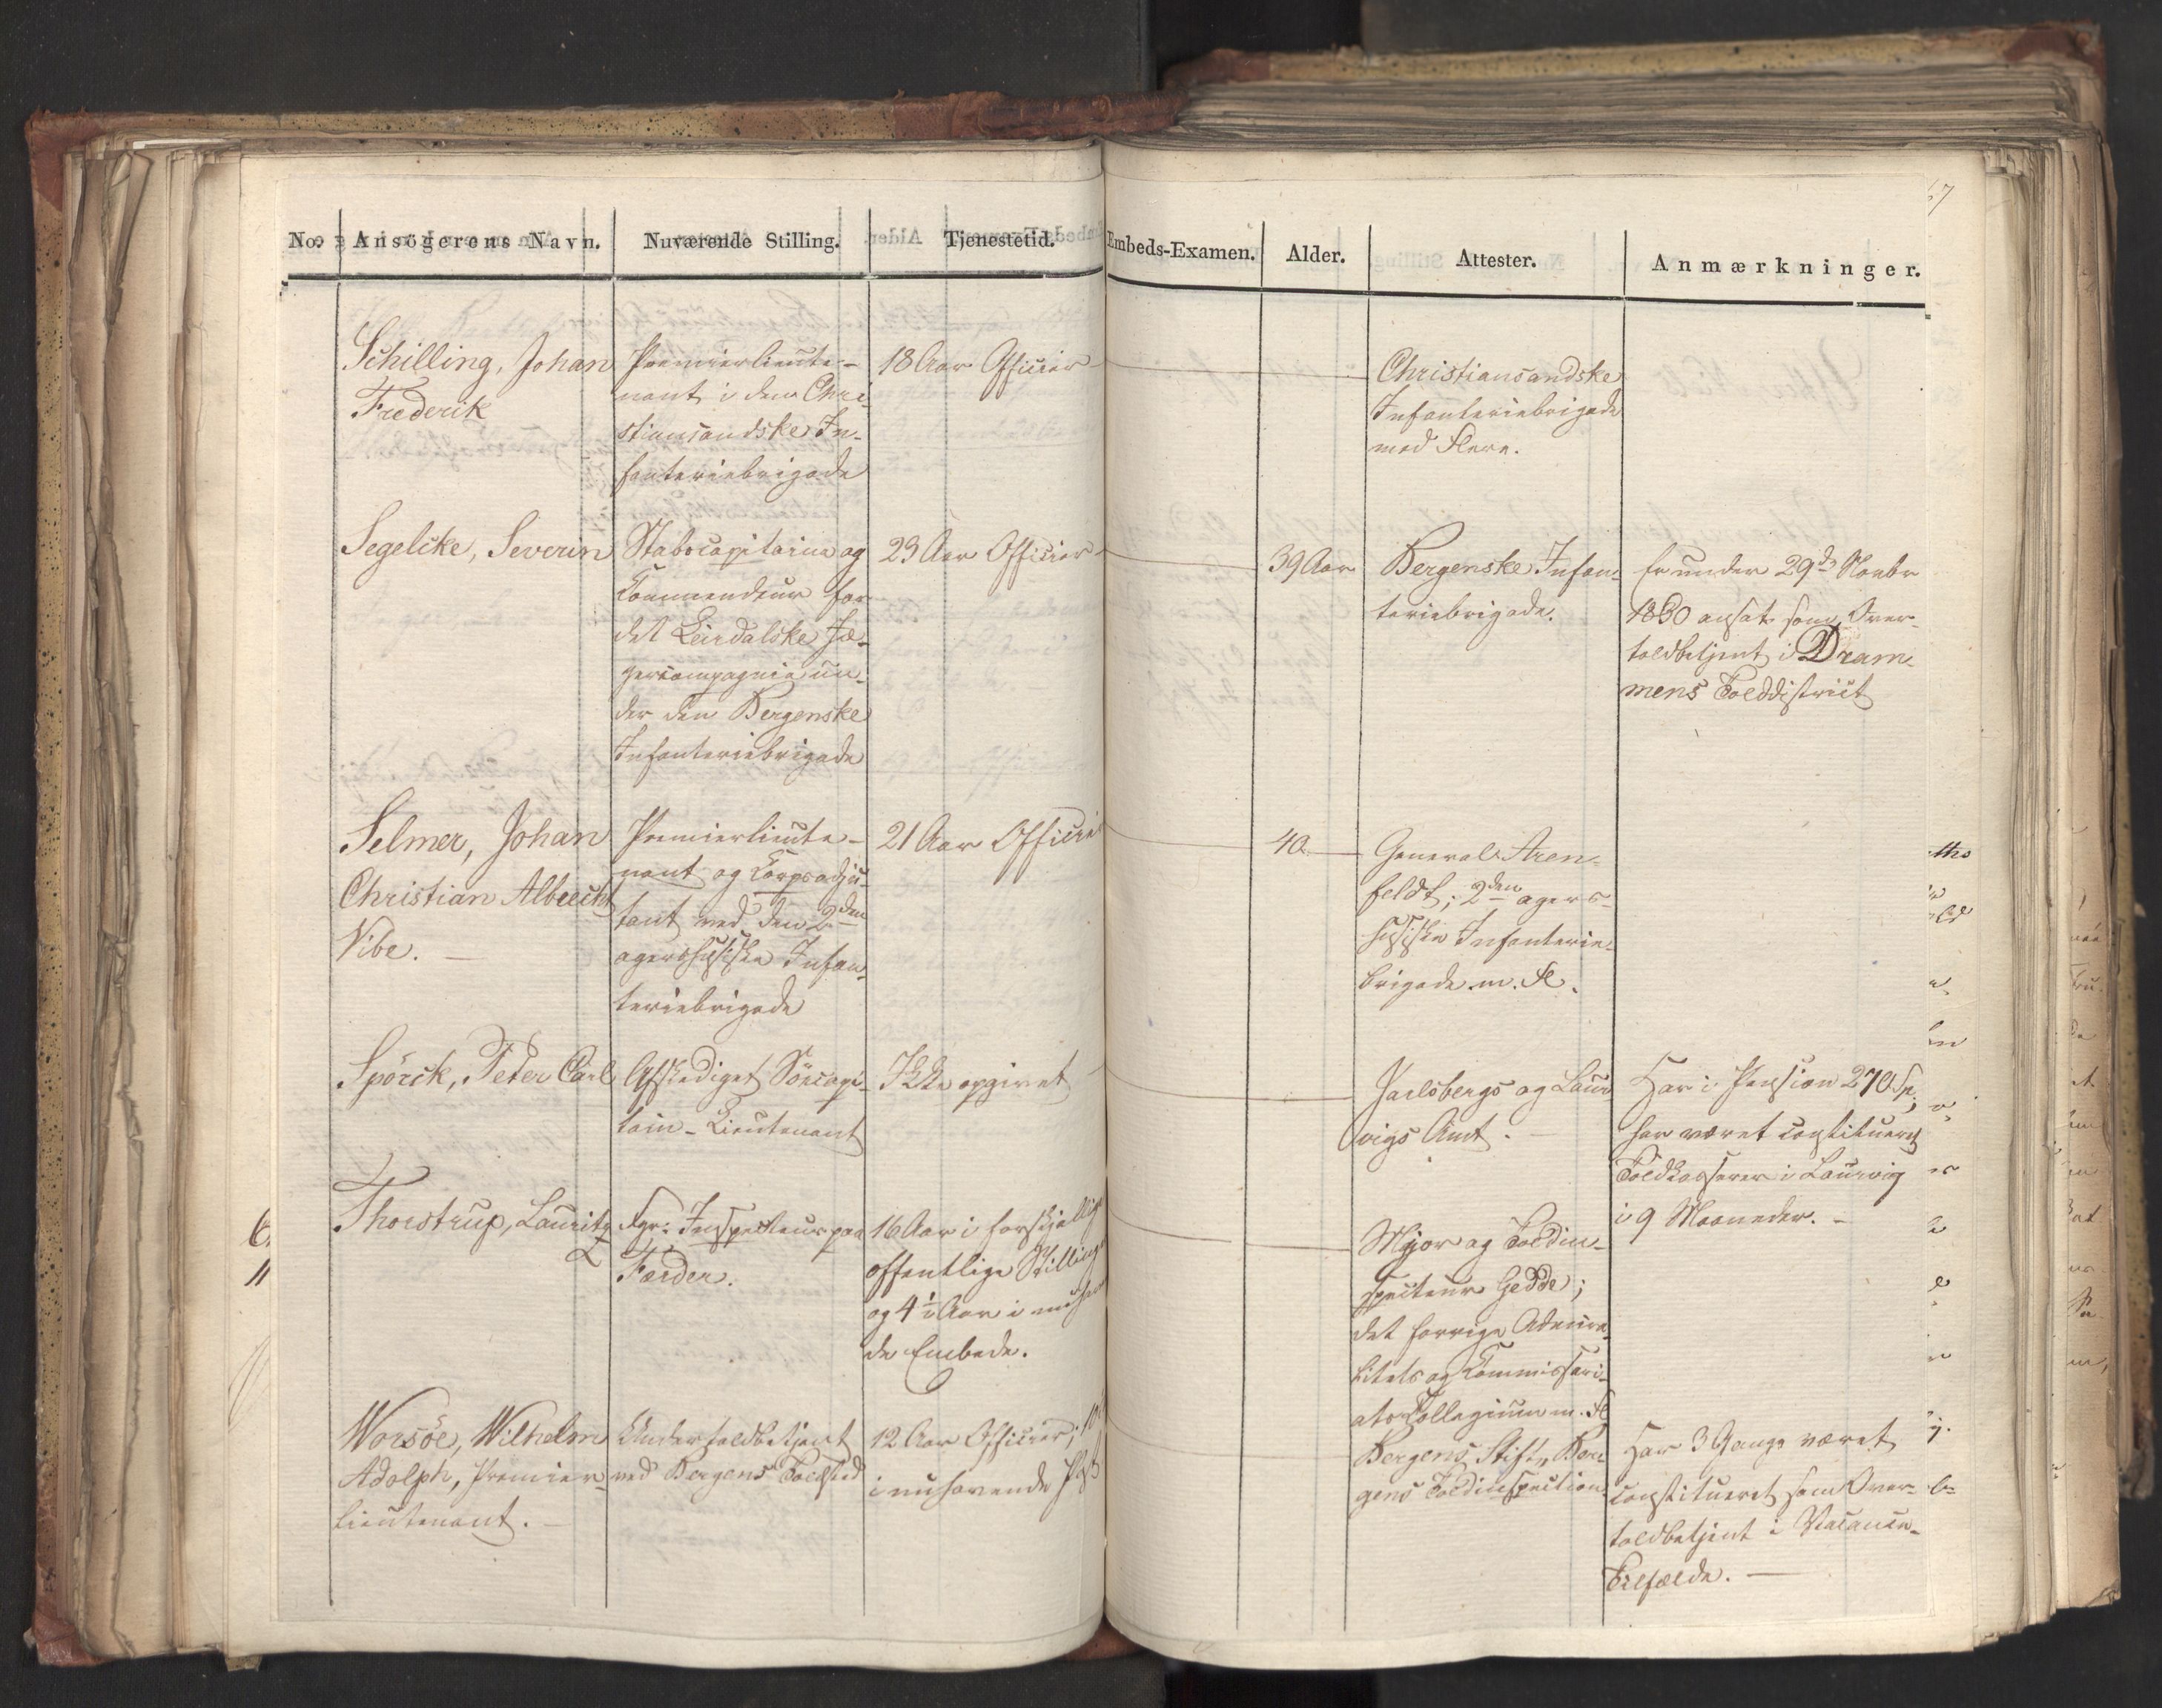 No. Ansögerens Navn. Nuværende Stilling. Tjenestetid. Embeds-Examen. Alder. Attester. Anmærkninger.
Schilling, Johan
Frederik
Premierlieute-
nant i den Chri-
stiansandske In-
fanteriebrigade
18 Aar Officier
Christiansandske
Infanteriebrigade
med Flere.
Segelcke, Severin
Stabscapitaine og
Commendeur for
det Leirdalske Jæ-
gercompagnie un-
der den Bergenske
Infanteriebrigade
23 Aar Officier
39 Aar
Bergenske Infan-
teriebrigade.
Er under 29de Novbr
1830 ansat som Over-
toldbetjent i Dram-
mens Tolddistrict
Selmer, Johan
Christian Albrecht
Vibe.
Premierlieute-
nant og Corpsadju-
tant med den 2den
agershusiske Infan-
teriebrigade
21 Aar Officier
40
General Aren-
feldt; 2den agers-
husiske Infanterie-
brigade m. Fl.
Spörck, Peter Carl
Afskediget Söecapi-
tain-Lieutenant
Ikke opgivet
Jarlsbergs og Laur-
vigs Amt.
Har i Pension 270 Sp;
har været constitueret
Toldkasserer i Laurvig
i 9 Maaneder.
Thorstrup, Lauritz
Fyr-Inspecteur paa
Færder.
16 Aar i forskjellige
offentlige Stillinger
og 4 1/2 Aar i nuhaven
de Embede.
Major og Toldin-
specteur Gedde;
det forrige Admira-
litets og Commissari-
ats Collegium m. Fl
Worsöe, Wilhelm
Adolph, Premier-
lieutenant.
Undertoldbetjent
ved Bergens Toldsted
12 Aar Officier; 10
i nuhavende Post
Bergens Stift, Ber-
gens Toldinspection
Har 3 Gange været
constitueret som Over-
toldbetjent i Vacance-
Tilfælde.